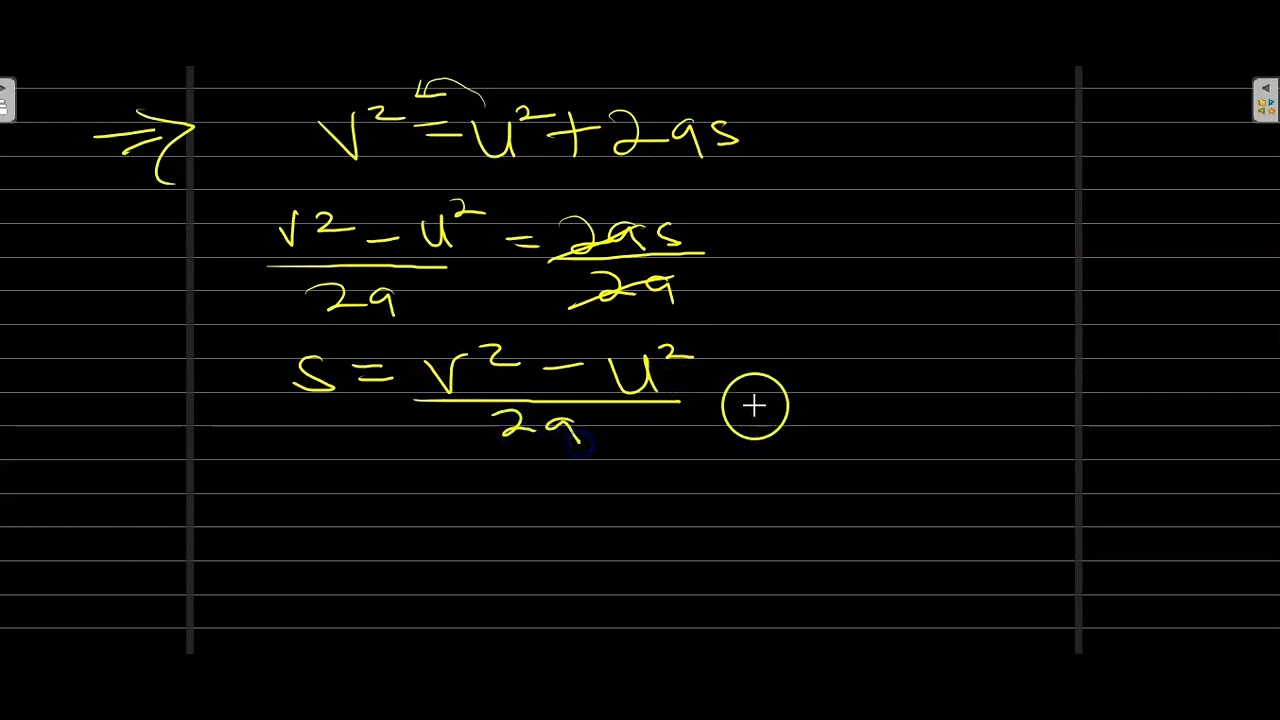 ⇒ v² = u² + 2as
v² - u² / 2a = 2as / 2a
s = v² - u² / 2a